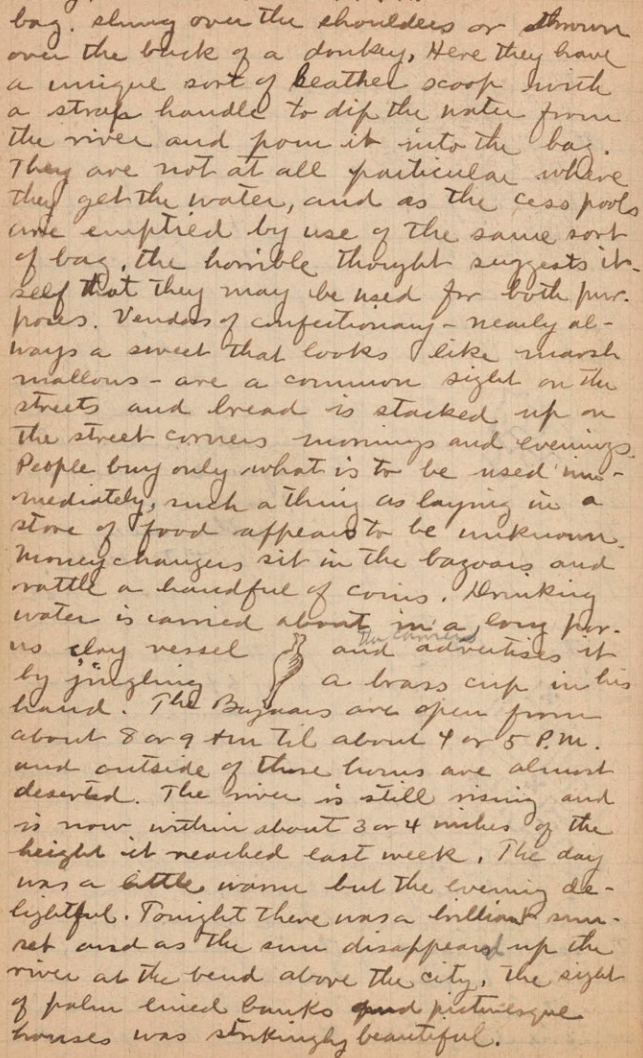 bag. slung over the shoulders or thrown
over the back of a donkey. Here they have
a unique sort of leather scoop with
a strap handle to dip the water from
the river and pour it into the bag.
They are not at all particular where
they get the water, and as the cess pools
are emptied by use of the same sort
of bag, the horrible thought suggests it-
self that they may be used for both pur-
poses. Vendors of confectionary - nearly al-
ways a sweet that looks like marsh
mallows - are a common sight on the
streets and bread is stacked up on
the street corners mornings and evenings.
People buy only what is to be used im-
mediately, such a thing as laying in a
store of food appears to be unknown.
Money changers sit in the bazaars and
rattle a handful of coins. Drinking
water is carried about in a long por-
us clay vessel and the carriers advertises it
by jingling a brass cup in his
hand. The Bazaars are open from
about 8 or 9 AM til about 4 or 5 P.M.
and outside of those hours are almost
deserted. The river is still rising and
is now within about 3 or 4 inches of the
height it reached last week. The day
was a little warm but the evening de-
lightful. Tonight there was a brilliant sun-
set and as the sun disappeared up the
river at the bend above the city, the sight
of palm lined banks and picturesque
houses was strikingly beautiful.